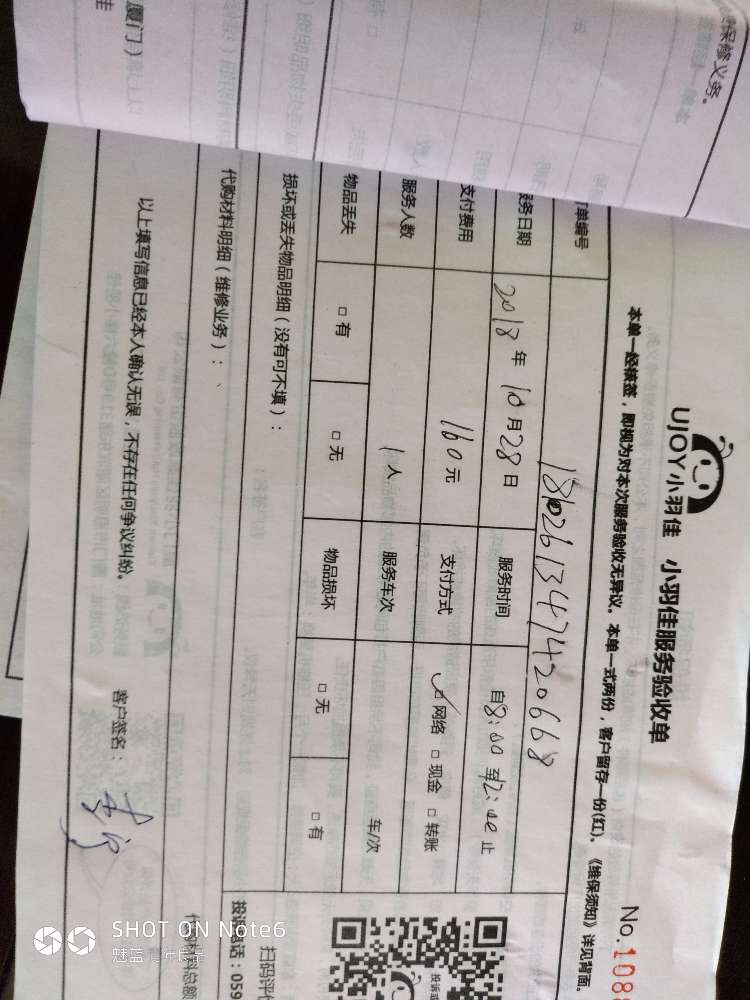 UJOY小羽佳 小羽佳服务验收单
No.108
本单一经核签，即视为对本次服务验收无异议。本单一式两份，客户留存一份(红)。《维保须知》详见背面。
订单编号 1810261347420668
服务日期 2018年10月28日 服务时间 自8:00至12:00止
支付费用 160元 支付方式 ☑网络 □现金 □转账
服务人数 1人 服务车次 车/次
物品丢失 □有 □无 物品损坏 □无 □有
损坏或丢失物品明细（没有可不填）：
代购材料明细（维修业务）：
以上填写信息已经本人确认无误，不存在任何争议纠纷。
客户签名：
扫码评价
投诉电话：059
代购材料总额
保修义务。
厦门）
SHOT ON Note6